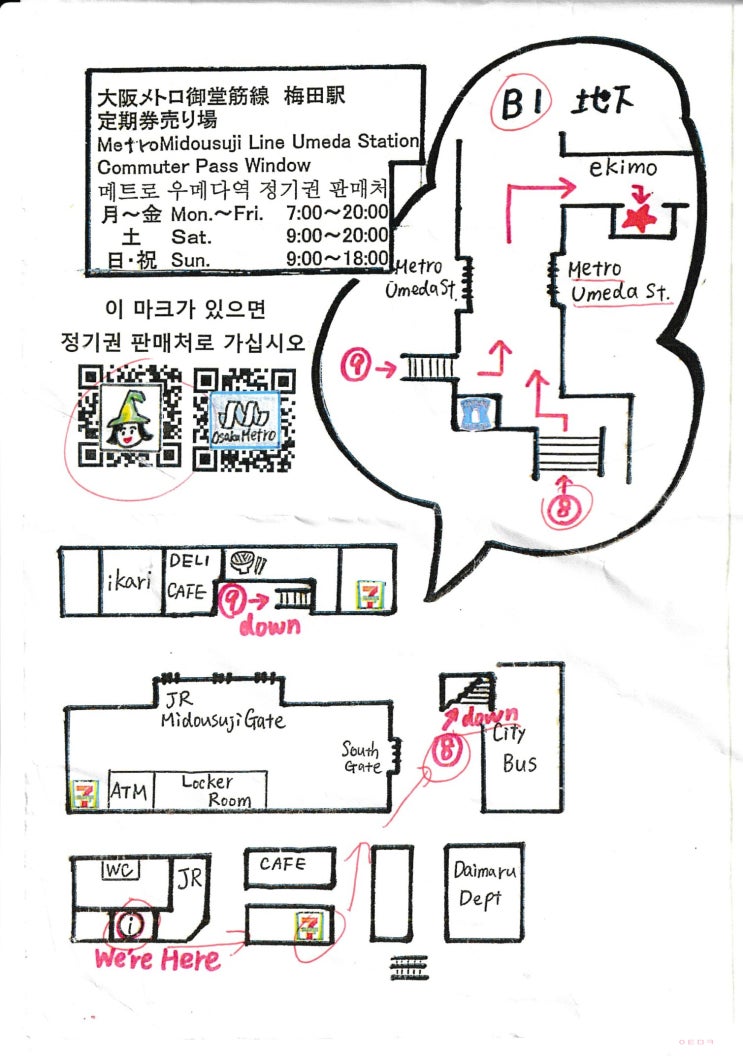 大阪メトロ御堂筋線 梅田駅
定期券売り場
MetroMidousuji Line Umeda Station
Commuter Pass Window
메트로 우메다역 정기권 판매처
月〜金 Mon.〜Fri. 7:00〜20:00
土 Sat. 9:00〜20:00
日・祝 Sun. 9:00〜18:00
이 마크가 있으면
정기권 판매처로 가십시오
Osaka Metro
B1 地下
ekimo
Metro
Umeda St.
Metro
Umeda St.
9
8
ikari
DELI
CAFE
9
down
7
JR
Midousuji Gate
South
Gate
7
ATM
Locker
Room
down
8
City
Bus
WC
JR
i
We're Here
CAFE
7
Daimaru
Dept